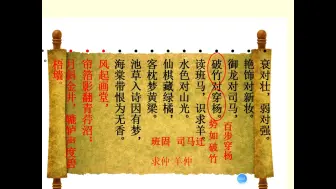 衰对壮，弱对强。
艳饰对新妆。
御龙对司马，
破竹对穿杨。
读班马，识求羊。
水色对山光。
仙棋藏绿橘，
客枕梦黄粱。
池草入诗因有梦，
海棠带恨为无香。
风起画堂，
帘箔影翻青荇沼；
月斜金井，辘轳声度碧
梧墙。
百步穿杨
势如破竹
班固 司马迁
求仲 羊仲